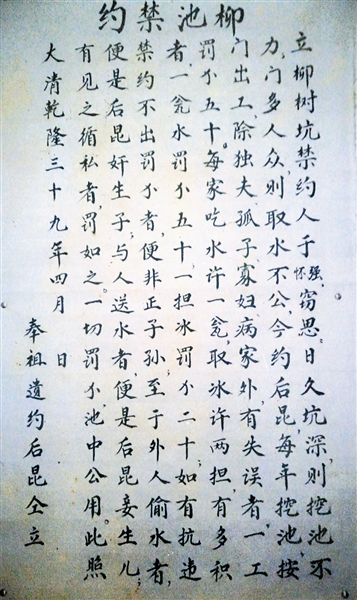 柳池禁约
立柳树坑禁约人于强怀,窃思日久坑深,则挖池不
力,门多人众,则取水不公,今约后昆每年挖池,按
门出工,除独夫孤子寡妇病家外,有失误者,一工
罚尒五十。每家吃水许一瓮,取冰许两担,有多积
者,一瓮水罚尒五十,一担冰罚尒二十,如有抗违
禁约不出罚尒者,便非正子孙;至于外人偷水者,
便是后昆奸生子;与人送水者,便是后昆妾生儿;
有见之循私者,罚如之。一切罚尒池中公用。此照
大清乾隆三十九年四月 日
奉祖遗约后昆仝立